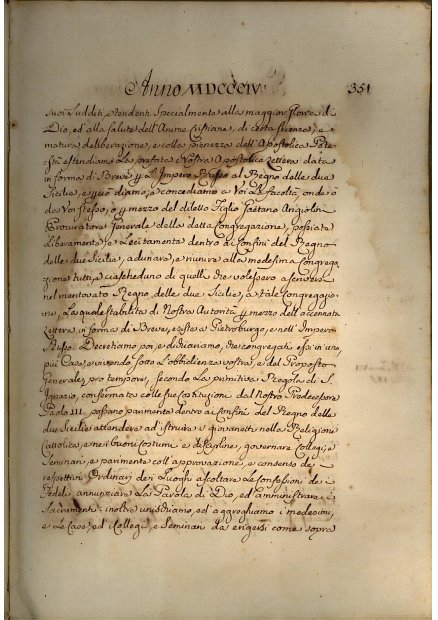 Anno MDCCCIV. 351
suoi Sudditi, e tendenti specialmente alla maggior gloria di
Dio, ed'alla salute dell'Anime Cristiane, di certa scienza, e
matura deliberazione, e colla pienezza dell'Apostolica Pote
stà estendiamo la prefata Nostra Apostolica Lettera data
in forma di Breve p l'Impero Russo al Regno delle due
Sicilie, e diamo, e concediamo a Voi la facoltà, onde o
da Voi stesso, o p mezzo del diletto Figlio Gaetano Angiolini
Procuratore Generale della detta Congregazione, possiate
liberamente, e lecitamente dentro ai Confini del Regno
delle due Sicilie, adunare, e riunire alla medesima Congrega
zione tutti, e ciascheduno di quelli che volessero ascriversi
nel mentovato Regno, delle due Sicilie, a tale Congregazio
ne, la quale stabilita di Nostra Autorità p mezzo dell'accennata
Lettera in forma di Breve, esiste a Pietroburgo, e nell'Impero
Russo. Decretiamo poi, e dichiariamo, che congregati essi in una, o
più Case, e vivendo sotto l'obbidienza vostra, e del Proposto
Generale, pro tempore, secondo la primitiva Regola di S.
Ignazio, confermata colle sue costituzioni dal Nostro Predecessore
Paolo III, possano parimente dentro ai Confini del Regno delle
due Sicilie attendere ad'istruire i giovanetti nella Religione
Cattolica, e nei buoni costumi e discipline, governare Collegj, e
Seminarj, e parimente coll'approvazione, e consenso de
respettivi Ordinarj dei Luoghi ascoltare le Confessioni de
Fedeli annunziare la Parola di Dio, ed amministrare i
Sacramenti: inoltre unischiamo, ed'aggreghiamo i medesimi,
e le Case, ed i Collegj, e Seminarj da erigersi come sopra